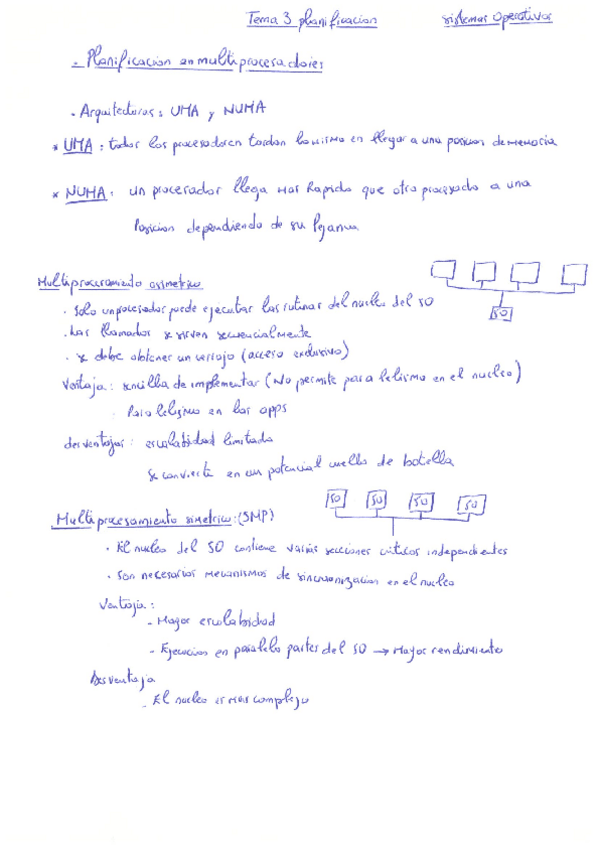 Tema 3 planificacion
Sistemas Operativos
- Planificacion en multiprocesadores
- Arquitecturas: UMA y NUMA
* UMA: todos los procesadores tardan lo mismo en llegar a una posicion de memoria
* NUMA: un procesador llega mas Rapido que otro procesado a una
Posicion dependiendo de su lejania
Multiprocesamiento asimetrico
- Solo un procesador puede ejecutar las rutinas del nucleo del SO
- Las llamadas se sirven secuencialmente
- se debe obtener un cerrojo (acceso exclusivo)
SO
Ventaja: sencilla de implementar (No permite paralelismo en el nucleo)
Paralelismo en las apps
desventajas: escalabidad limitada
Se convierte en un potencial cuello de botella
Multiprocesamiento simetrico: (SMP)
SO SO SO SO
- El nucleo del SO contiene varias secciones criticas independientes
- Son necesarios mecanismos de sincronizacion en el nucleo
Ventaja:
- Mayor escalabidad
- Ejecucion en paralelo partes del SO → Mayor rendimiento
Desventaja
- El nucleo es mas complejo